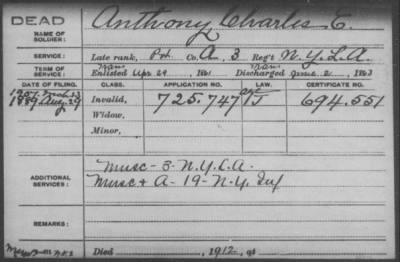 DEAD
NAME OF SOLDIER: Anthony Charles E.
SERVICE: Late rank, Pvt Co. A, 3 Reg't N.Y.L.A.
TERM OF SERVICE: Enlisted Apr 29, 1861 Discharged June 2, 1863
DATE OF FILING. CLASS. APPLICATION NO. LAW. CERTIFICATE NO.
1907 Mch 13
1889 Aug 29 Invalid, 725.747 694.551
Widow,
Minor,
ADDITIONAL SERVICES: Musc - 3 - N.Y.L.A.
Musc & A - 19 - N.Y. Inf
REMARKS:
Died , 1912, at